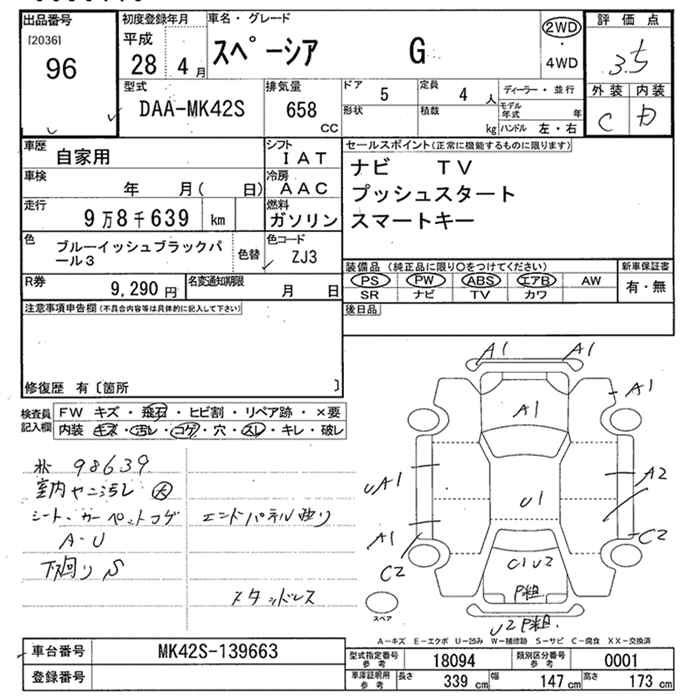 出品番号
[2036]
96
初度登録年月
平成
28 4月
車名・グレード
スペーシア G
2WD
・
4WD
評価点
3.5
外装 内装
C D
型式
DAA-MK42S
排気量
658
cc
ドア
5
定員
4人
形状
積載
kg
ディーラー・並行
モデル年式 年
ハンドル 左・右
車歴
自家用
シフト
IAT
車検
年 月( 日)
冷房
AAC
走行
9万8千639 km
燃料
ガソリン
色
ブルーイッシュブラックパール3
色替
色コード
ZJ3
R券
9,290円
名変通知期限
月 日
セールスポイント(正常に機能するものに限ります)
ナビ TV
プッシュスタート
スマートキー
装備品(純正品に限り○をつけてください)
PS PW ABS エアB AW
SR ナビ TV カワ
新車保証書
有・無
後日品
注意事項申告欄(不具合内容等は具体的に記入して下さい)
修復歴 有〔箇所 〕
検査員記入欄
FW キズ・飛石・ヒビ割・リペア跡・×要
内装 キズ・汚レ・コゲ・穴・スレ・キレ・破レ
98639
室内ヤニ汚レ 大
シート、カーペットコゲ
A・U
下廻りS
エンドパネル凹り
スタッドレス
A1 A1
A1
A1
UA1
A2
U1
A1
C2
C2
C1 U2
P粗
U2 P粗
スペア
A-キズ E-エクボ U-凹み W-補修跡 S-サビ C-腐食 XX-交換済
車台番号
MK42S-139663
登録番号
型式指定番号 参考
18094
類別区分番号 参考
0001
車庫証明用 参考
長さ 339 cm
幅 147 cm
高さ 173 cm